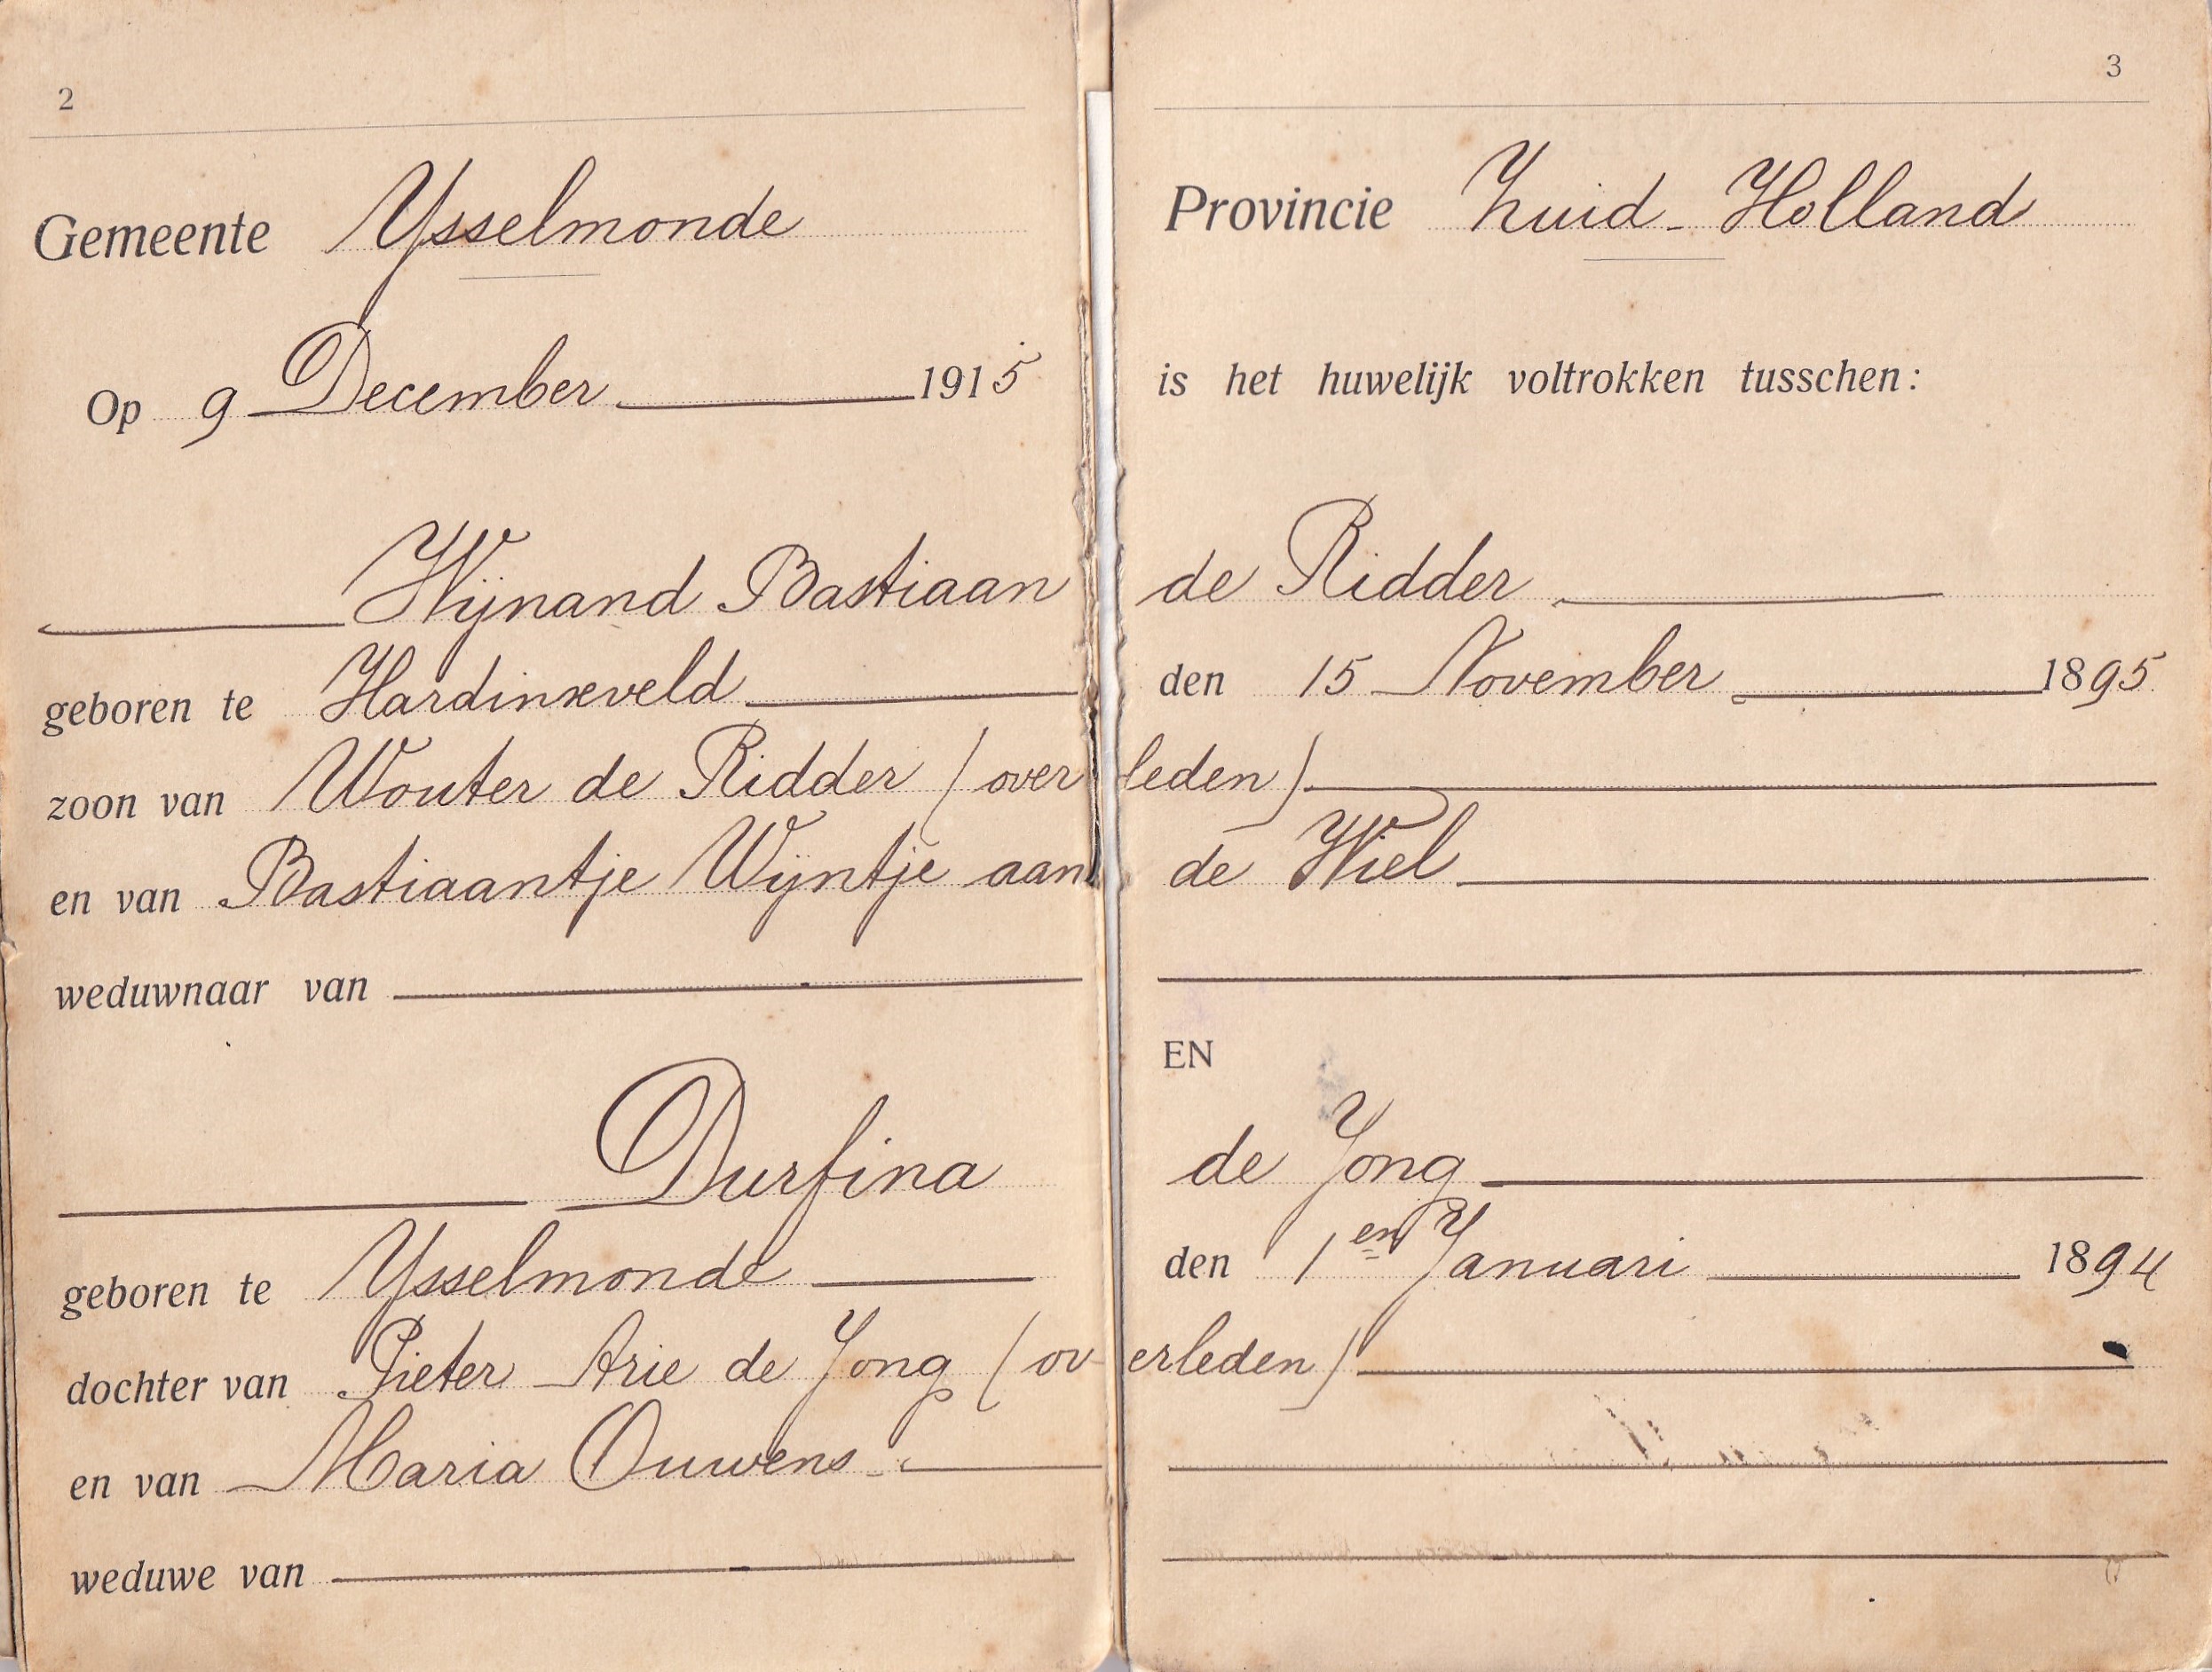 2
Gemeente Ysselmonde
Op 9 December 1915
Wijnand Bastiaan
geboren te Hardinxveld
zoon van Wouter de Ridder (over
en van Bastiaantje Wijntje aan
weduwnaar van
Durfina
geboren te Ysselmonde
dochter van Pieter Arie de Jong (ov-
en van Maria Ouwens
weduwe van
3
Provincie Zuid-Holland
is het huwelijk voltrokken tusschen:
de Ridder
den 15 November 1895
leden)
de Wiel
EN
de Jong
den 1en Januari 1894
erleden)